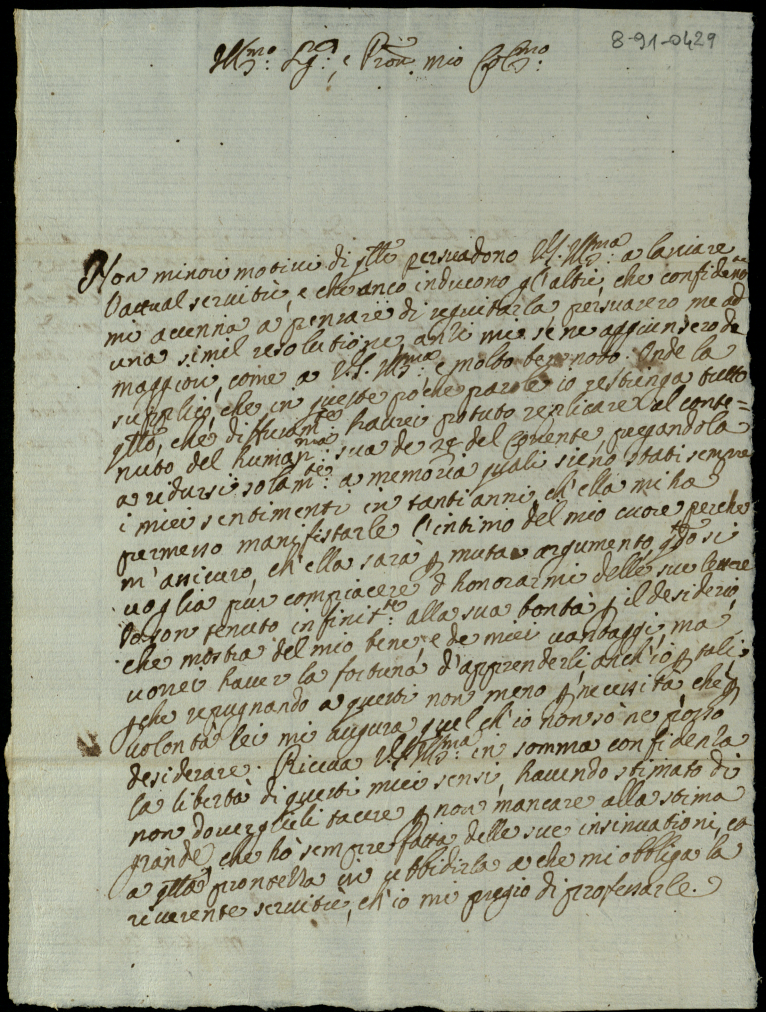 8-91-0429
Ill.mo Sig.re, e Pron. mio Col.mo
Non minori motivi di q.lli persuadono V.S. Ill.ma a lasciare
l'attual servitù, e che anco inducono gl'altri, che confidentem.te
mi accenna a pensare di seguitarla persuasero me ad
una simil resolutione, anzi me se ne aggiunsero de
maggiori, come a V.S. Ill.ma è molto ben noto. Onde la
supplico, che in queste poche parole io restringa tutto
q.llo, che diffusam.te haurei potuto replicare al conte=
nuto del humaniss.ma sua de 28 del Corrente pregandola
a ridursi solam.te a memoria quali sieno stati sempre
i miei sentimenti in tanti anni, ch'ella mi ha
permesso manifestarle l'intimo del mio cuore perche
m'assicuro, ch'ella sarà p mutar argumento, q.do si
voglia pur compiacere d honorarmi delle sue lettere
Io son tenuto infinit.te alla sua bontà p il desiderio,
che mostra del mio bene, e de miei vantaggi, ma
vorrei haver la fortuna d'apprenderli anch'io p tali,
p che repugnando a questi non meno p necessità che p
volontà lei mi augura quel ch'io non sò ne posso
desiderare. Riceva V.S. Ill.ma in somma confidenza
la libertà di questi miei sensi, havendo stimato di
non doverglieli tacere p non mancare alla stima
grande, che hò sempre fatta delle sue insinuationi, et
a q.lla prontezza in ubbidirla a che mi obbliga la
riverente servitù, ch'io mi pregio di professarle.